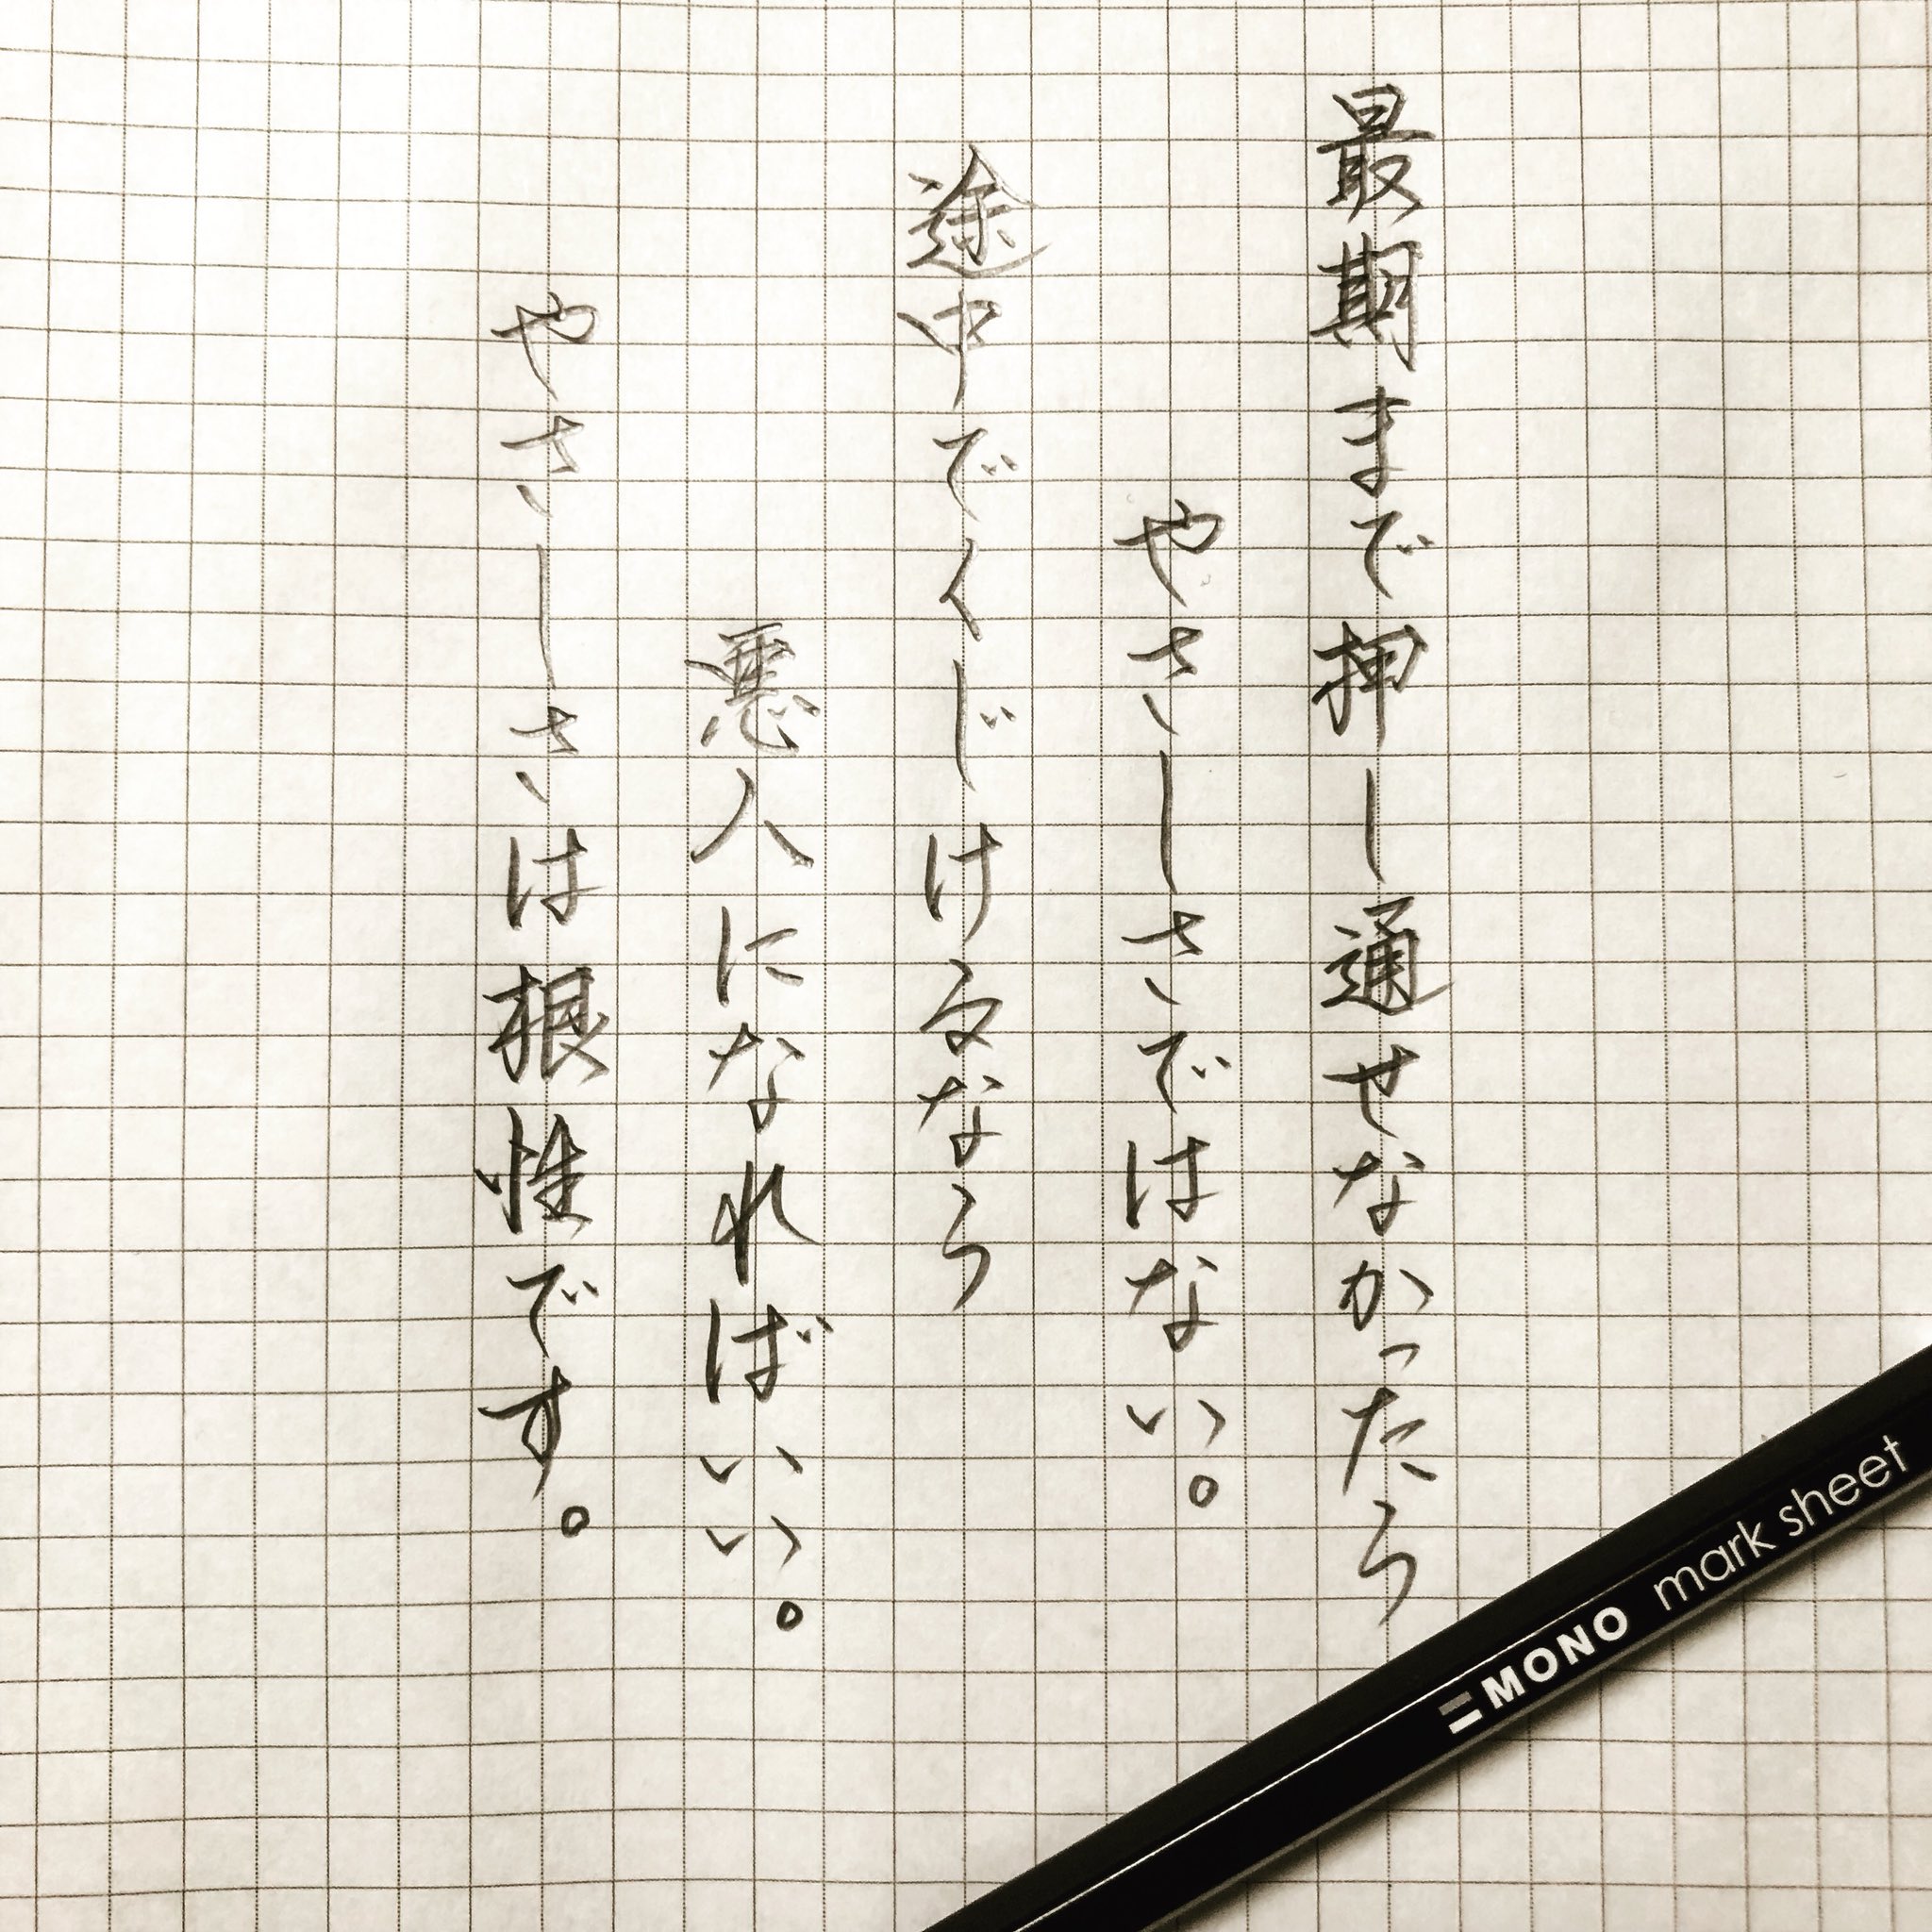 最期まで押し通せなかったら
やさしさではない。
途中でくじけるなら
悪人になればいい。
やさしさは根性です。
MONO mark sheet